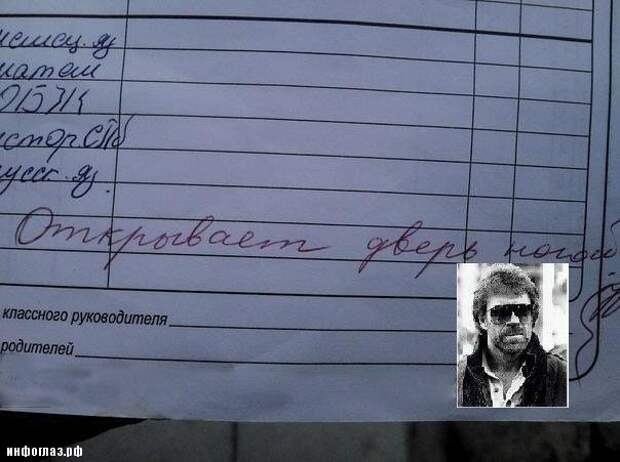 немец. яз
матем
ОБЖ
истор. СПб
русск. яз.
Открывает дверь ногой
классного руководителя
родителей
инфоглаз.рф